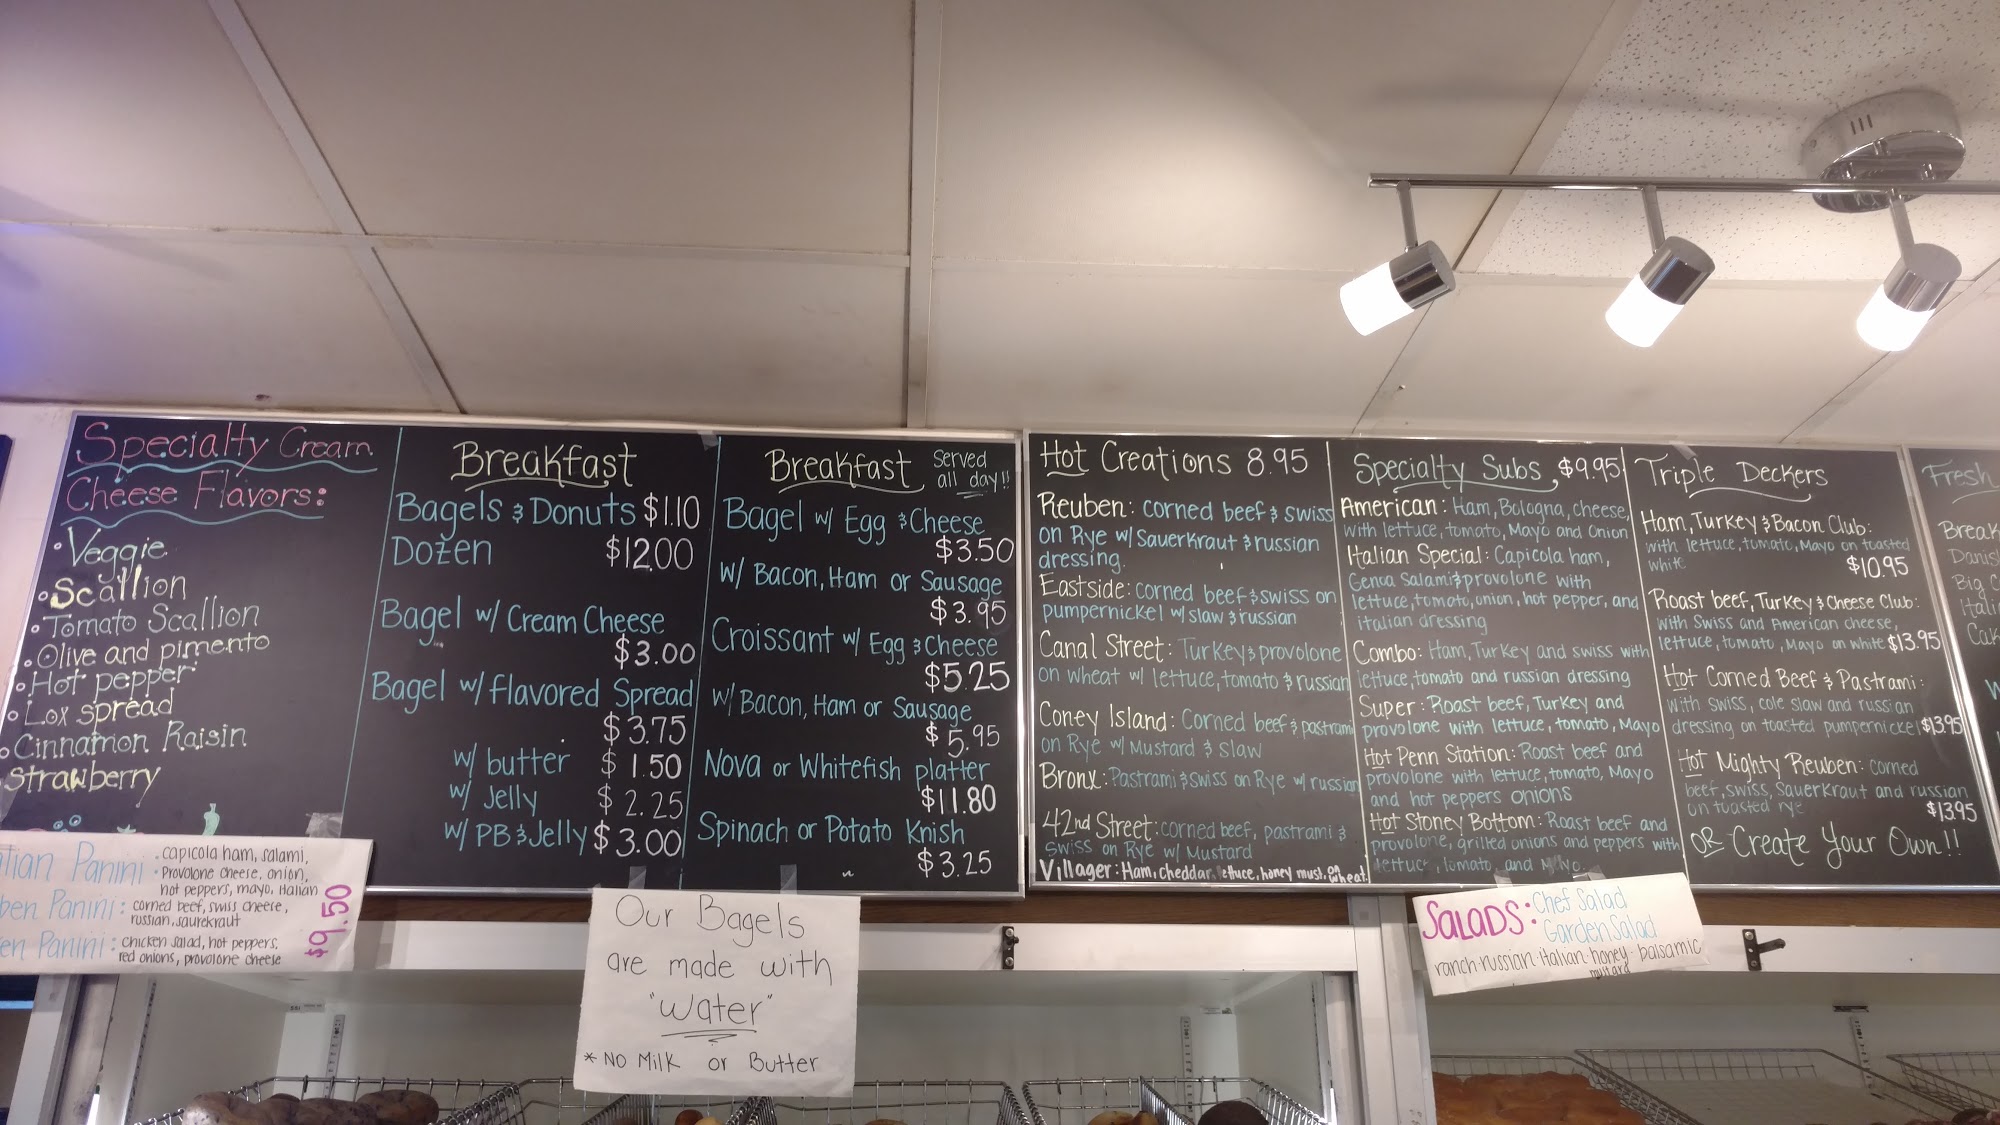 Specialty Cream
Cheese Flavors:
• Veggie
• Scallion
• Tomato Scallion
• Olive and pimento
• Hot pepper
• Lox spread
• Cinnamon Raisin
Strawberry
Panini • capicola ham, salami,
Provolone cheese, onion,
hot peppers, mayo, Italian
Panini: corned beef, swiss cheese,
russian, saurekraut
Panini: chicken salad, hot peppers,
red onions, provolone cheese
$9.50
Breakfast
Bagels & Donuts $1.10
Dozen $12.00
Bagel w/ Cream Cheese
$3.00
Bagel w/ flavored Spread
$3.75
w/ butter $1.50
w/ Jelly $2.25
w/ PB & Jelly $3.00
Breakfast served
all day!!
Bagel w/ Egg & Cheese
$3.50
w/ Bacon, Ham or Sausage
$3.95
Croissant w/ Egg & Cheese
$5.25
w/ Bacon, Ham or Sausage
$5.95
Nova or Whitefish platter
$11.80
Spinach or Potato Knish
$3.25
Our Bagels
are made with
"water"
* No Milk or Butter
Hot Creations 8.95
Reuben: corned beef & swiss
on Rye w/ Sauerkraut & russian
dressing.
Eastside: corned beef & swiss on
pumpernickel w/ slaw & russian
Canal Street: Turkey & provolone
on wheat w/ lettuce, tomato & russian
Coney Island: Corned beef & pastrami
on Rye w/ Mustard & slaw
Bronx: Pastrami & swiss on Rye w/ russian
42nd Street: corned beef, pastrami &
Swiss on Rye w/ Mustard
Villager: Ham, cheddar, lettuce, honey must. on wheat.
Specialty Subs $9.95
American: Ham, Bologna, cheese,
with lettuce, tomato, Mayo and Onion
Italian Special: Capicola ham,
Genoa Salami & provolone with
lettuce, tomato, onion, hot pepper, and
italian dressing
Combo: Ham, Turkey and swiss with
lettuce, tomato and russian dressing
Super: Roast beef, Turkey and
provolone with lettuce, tomato, Mayo
Hot Penn Station: Roast beef and
provolone with lettuce, tomato, Mayo
and hot peppers onions
Hot Stoney Bottom: Roast beef and
provolone, grilled onions and peppers with
lettuce, tomato, and Mayo
SALADS: Chef Salad
Garden Salad
ranch • russian • Italian • honey • balsamic
mustard
Triple Deckers
Ham, Turkey & Bacon Club:
with lettuce, tomato, Mayo on toasted
white $10.95
Roast beef, Turkey & Cheese Club:
with Swiss and American cheese,
lettuce, tomato, Mayo on white $13.95
Hot Corned Beef & Pastrami:
with swiss, cole slaw and russian
dressing on toasted pumpernickel $13.95
Hot Mighty Reuben: corned
beef, swiss, Sauerkraut and russian
on toasted rye $13.95
OR Create Your Own!!
Fresh
Break
Danis
Big C
Itali
Cak